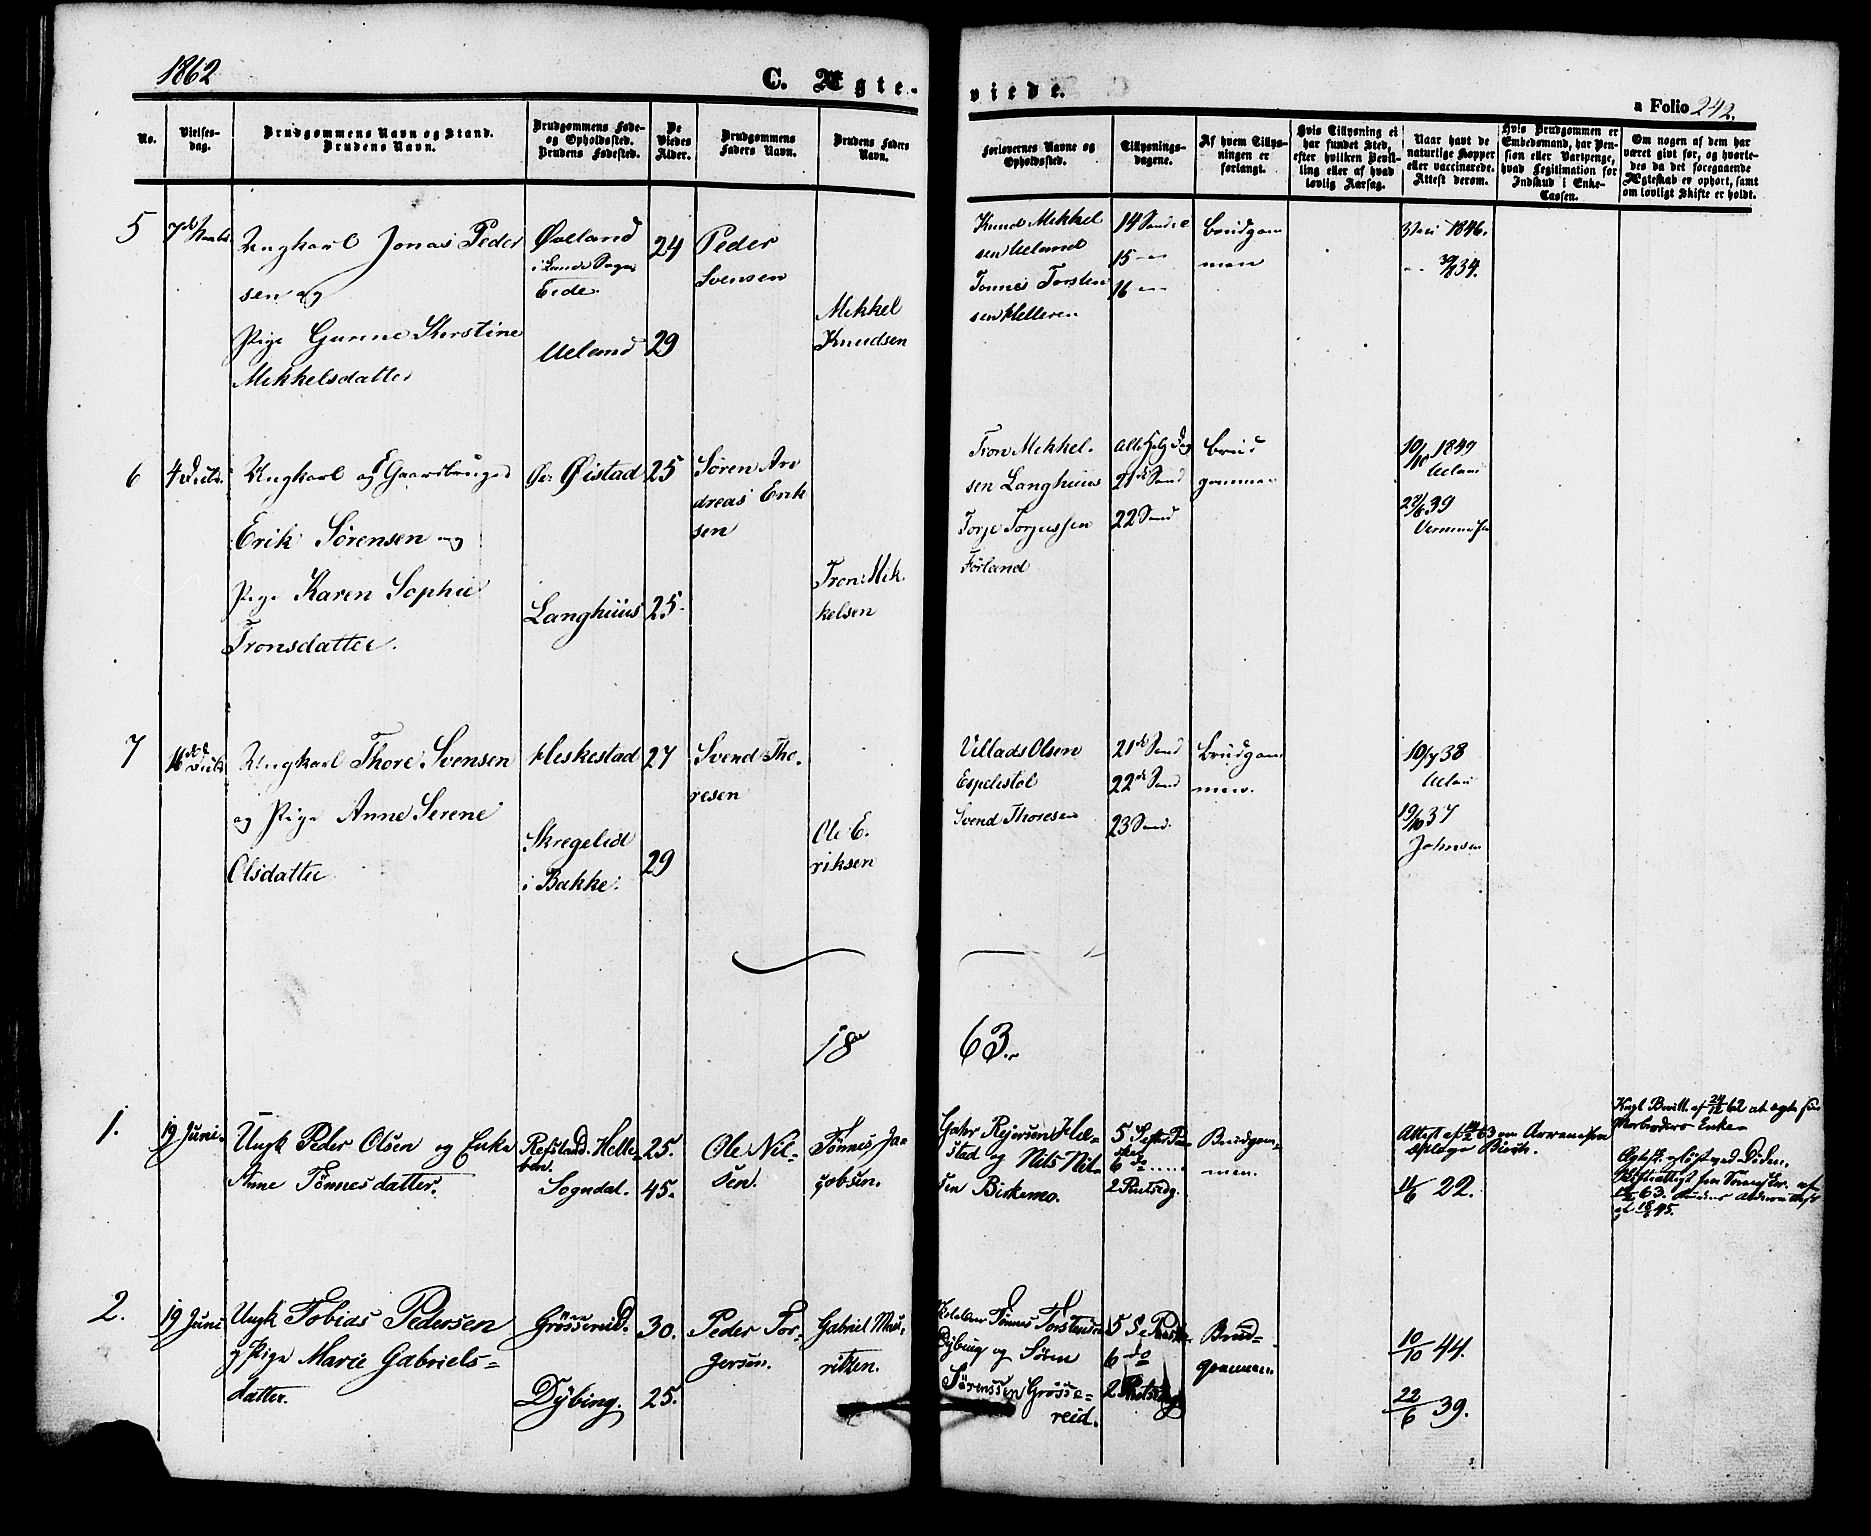 1862
C. Ægte-
viede.
a Folio 242.
No.
Vielses-
dag.
Brudgommens Navn og Stand.
Brudens Navn.
Brudgommens Føde-
og Opholdssted.
Brudens Fødested.
De
Viedes
Alder.
Brudgommens
Faders Navn.
Brudens Faders
Navn.
Forlovernes Navne og
Opholdssted.
Tillysnings-
dagene.
Af hvem Tillys-
ningen er
forlangt.
Hvis Tillysning ei
har fundet Sted,
efter hvilken Bevil-
ling eller af hvad
lovlig Aarsag.
Naar havt de
naturlige Kopper
eller vaccinerede.
Attest derom.
Hvis Brudgommen er
Embedsmand, har Pen-
sion eller Vartpenge,
hvad Legitimation for
Indskud i Enke-
Cassen.
Om nogen af dem har
været gift før, og hvorle-
des da det foregaaende
Ægteskab er ophørt, samt
om lovligt Skifte er holdt.
5
Ungkarl Jonas Peder
sen og
Pige Gunne Kirstine
Mikkelsdatter
Øveland
Eide
Ueland
24
29
Peder
Svensen
Mikkel
Knudsen
Knud Mikkel
sen Ueland
Tonnes Torsten
sen Helleren
14 Sond e
15 --
16 --
Brudgom
men
1846.
30/8 34.
6
4 Juli
Ungkarl og Gaardbruger
Erik Sørensen og
Pige Karen Sophie
Tronsdatter.
Øistad
Langhuus
25
25
Søren An
dreas Erik
sen
Tron Mik
kelsen
Tron Mikkel-
sen Langhuus
Torje Torjussen
Førland
Alle Helg Dag
21de Sønd
22 Sønd
Brud
gommen
10/10 1849
Ueland
22/6 39
7
16de Juli
Ungkarl Thore Svensen
og Pige Anne Serene
Olsdatter
Heskestad
Skregelid
i Bakke.
27
29
Svend Tho-
resen
Ole E.
riksen
Villads Olsen
Espelistøl
Svend Thoresen
21de Sønd
22de Sønd
23 Sønd.
Brudgom
men.
10/7 38
Ueland
19/10 37
Johnsen
18
63.
1.
19 Juni.
Ungk Peder Olsen og Enke
Anne Tønnesdatter.
Refsland. Helle-
ren.
Sogndal.
25.
45.
Ole Nil-
sen.
Tønnes Ja-
cobsen.
Gahr Rejersen Hæ-
stad og Nils Nil-
sen Birkemo.
6 do
2 Pintsedg.
Brudgom-
men.
11/6 22.
Kngl Bevill. af 24/12 62 at egte sin
Morbroders Enke
2.
19 Juni
Ungk Tobias Pedersen
og Pige Marie Gabriels-
datter.
Grøssereid.
Dybing.
30.
25.
Peder Tor-
gersen.
Gabriel Mau-
ritzen.
Tønnes Torstensen
Dybing og Søren
Sørenssen Grøsse-
reid.
6 do
2 Pintsedg
Brud-
gommen.
10/10 44.
22/6 39.